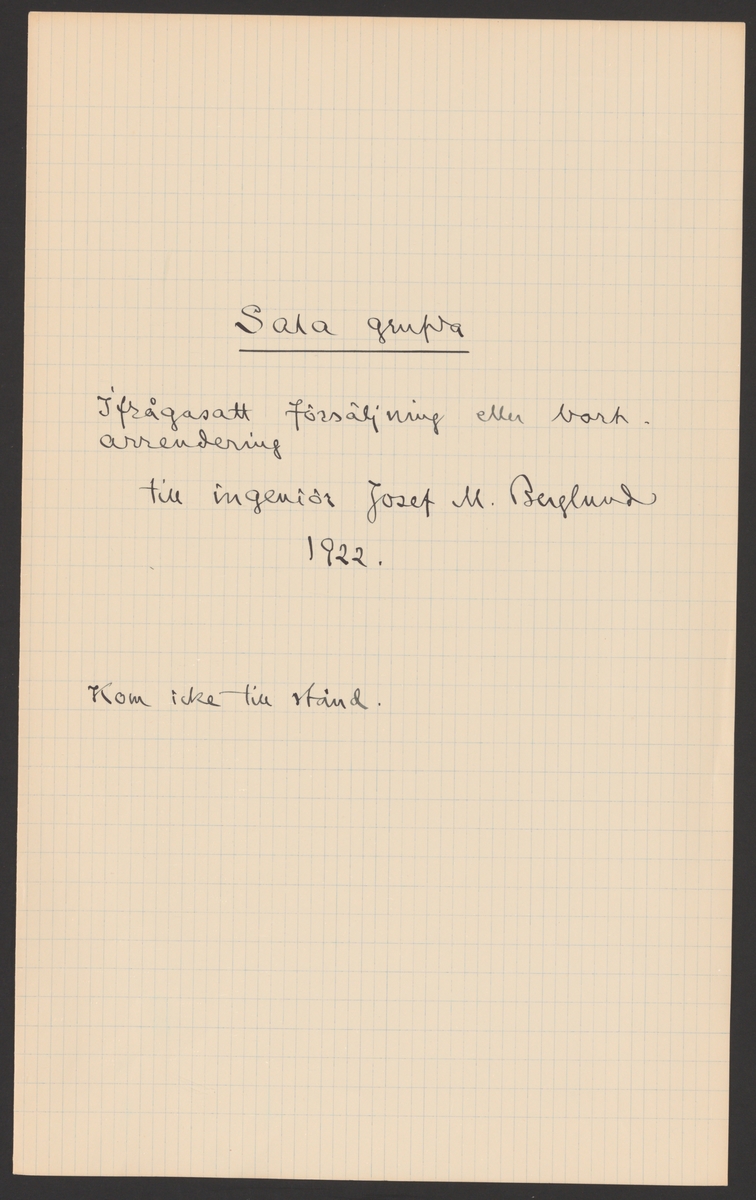 Sala grufva
Ifrågasatt försäljning eller bort-
arrendering
till ingeniör Josef M. Berglund
1922.
Kom icke till stånd.